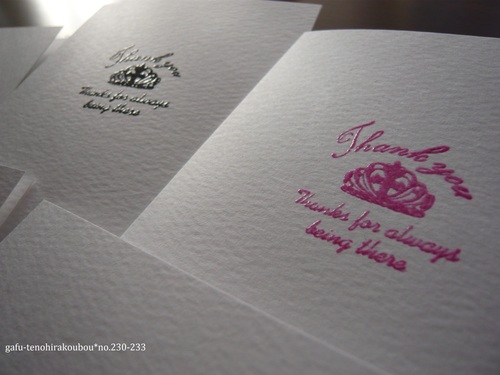 Thank you
Thanks for always
being there
Thank you
Thanks for always
being there
gafu-tenohirakoubou*no.230-233